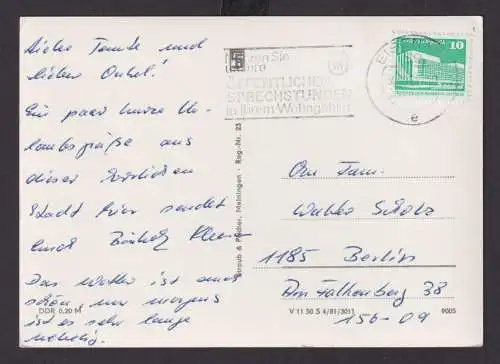 Liebe Tante und
lieber Onkel!
Ein paar kurze Ur-
laubsgrüße aus
dieser
Stadt hier sendet
Euch
Das Wetter ist auch
schön, nur morgens
ist es sehr lange
neblig.
DDR 0,20 M
Straub & Fischer, Meiningen · Reg.-Nr. 23
Sie
ÖFFENTLICHEN
SPRECHSTUNDEN
in Ihrem Wohngebiet
10
e
An Fam.
Walter Scholz
1185 Berlin
Am Falkenberg 38
156-09
V 11 50 S 4/81/3011
9005